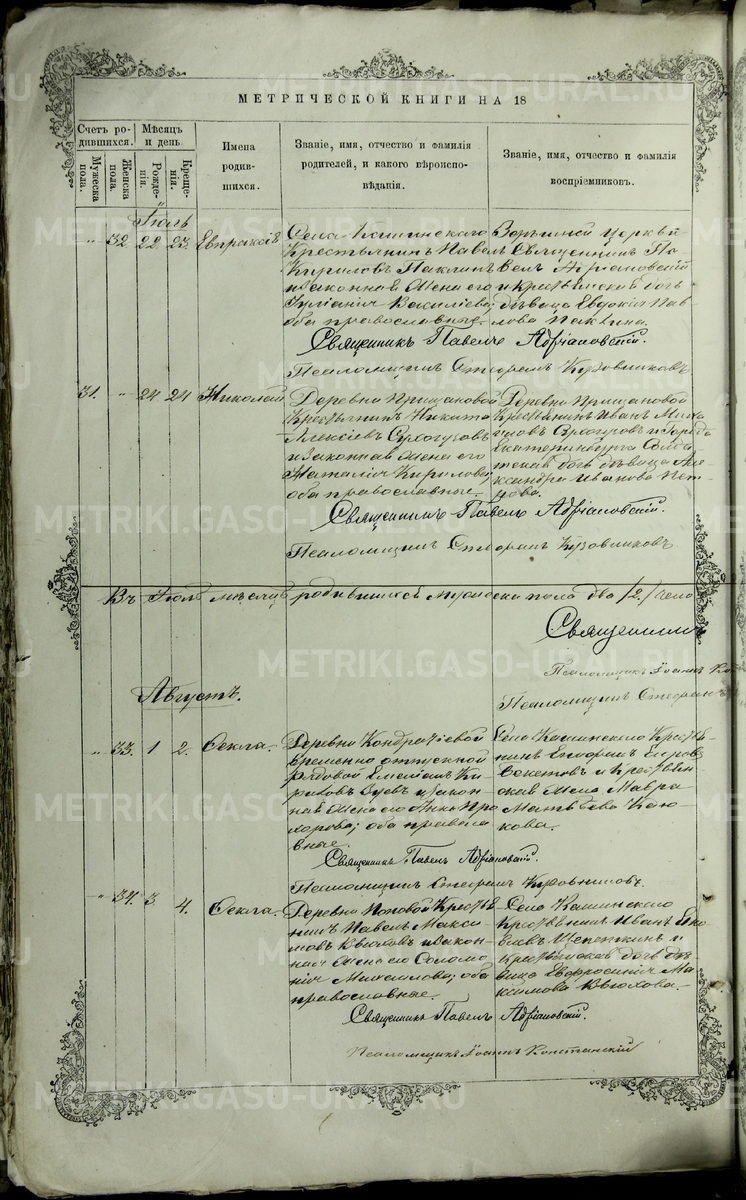 МЕТРИЧЕСКОЙ КНИГИ НА 18
Счетъ родившихся.
Мужеска пола.
Женска пола.
Мѣсяцъ и день.
Рожденія.
Крещенія.
Имена родившихся.
Званіе, имя, отчество и фамилія родителей, и какого вѣроисповѣданія.
Званіе, имя, отчество и фамилія воспріемниковъ.
Іюль
„ 32. 22. 23. Евпраксія
Села Кашинскаго
Крестьянинъ Павелъ
Кириловъ
и законная жена его
Васильева;
оба православные.
церкви
Священникъ Па
велъ Адріановскій
и крестьянская дочь
дѣвица Евдокія Пав
лова
Священникъ Павелъ Адріановскій.
Псаломщикъ Стефанъ Кузовниковъ
31. „ 24 24 Николай
Деревни
Крестьянинъ Никита
Алексіевъ
и законная жена его
Наталія Кирилова;
оба православные.
Деревни
Крестьянинъ Иванъ
и Города
Екатеринбурга Солдат
ская дочь дѣвица Але
ксандра Иванова Пет
рова.
Священникъ Павелъ Адріановскій.
Псаломщикъ Стефанъ Кузовниковъ
Въ Іюлѣ мѣсяцѣ родившихся мужеска пола два /2./
Священникъ
Псаломщикъ Іоаннъ Ко
Псаломщикъ Стефанъ
Августъ.
„ 33. 1 2. Ѳекла.
Деревни Кондратіевой
временно отпускной
рядовой
и закон
ная жена его Анна Про
хорова; оба правосла
вные.
Села Кашинскаго Кресть
нинъ
и Крестьян
ская жена Мавра
Матвѣева
Священникъ Павелъ Адріановскій.
Псаломщикъ Стефанъ Кузовниковъ.
„ 34. 3. 4. Ѳекла.
Деревни Поповой Крестья
нинъ Павелъ Макси
мовъ Вьюховъ и закон
ная жена его Соломо
нія
оба
православные.
Села Кашинскаго
Крестьянинъ Иванъ
и
Крестьянская дочь дѣ
вица Евфросинія Ма
ксимова Вьюхова.
Священникъ Павелъ Адріановскій.
Псаломщикъ Іоаннъ Констанскій
METRIKI.GASO-URAL.RU